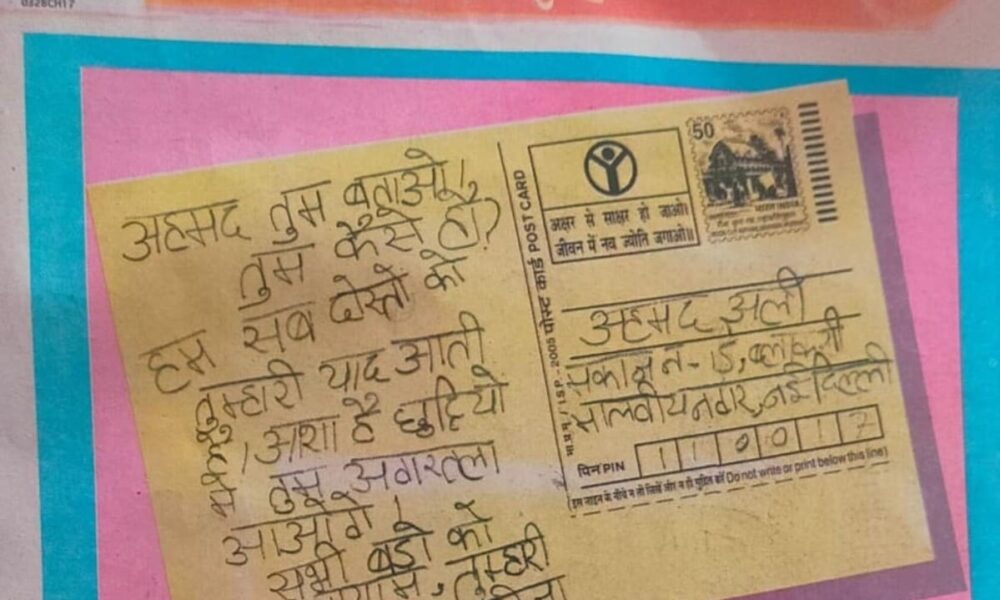 0328CH17
अहमद तुम बताओ!
तुम कैसे हो?
हम सब दोस्तों को
तुम्हारी याद आती
है। आशा है छुट्टियों
में तुम अगरतला
आओगे।
सभी बड़ो को
प्रणाम, तुम्हारी
2005 पोस्ट कार्ड POST CARD
अक्षर से साक्षर हो जाओ।
जीवन में नव ज्योति जगाओ॥
50
भारत INDIA
अहमद अली
मकान न-15, ब्लाक सी
मालवीय नगर, नई दिल्ली
पिन PIN 110017
(इस लाइन के नीचे न तो लिखें और न ही मुद्रित करें Do not write or print below this line)